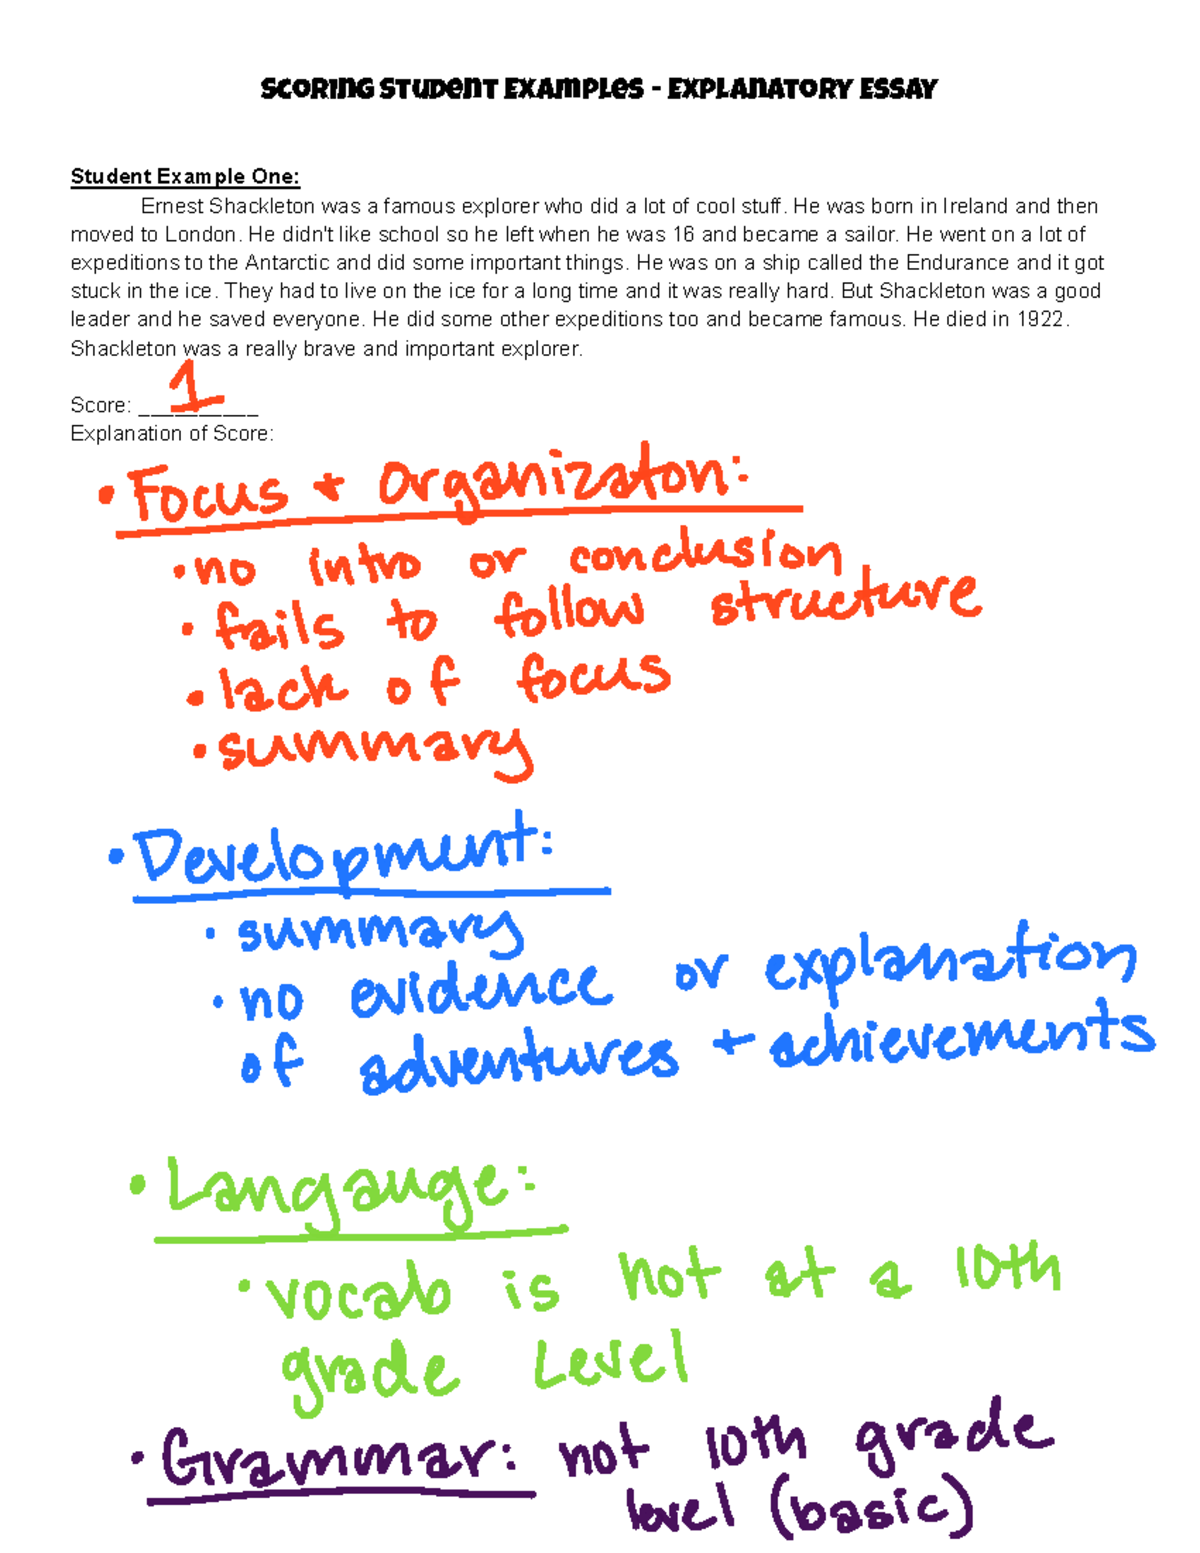 Scoring Student Examples - Explanatory Essay
Student Example One:
Ernest Shackleton was a famous explorer who did a lot of cool stuff. He was born in Ireland and then
moved to London. He didn't like school so he left when he was 16 and became a sailor. He went on a lot of
expeditions to the Antarctic and did some important things. He was on a ship called the Endurance and it got
stuck in the ice. They had to live on the ice for a long time and it was really hard. But Shackleton was a good
leader and he saved everyone. He did some other expeditions too and became famous. He died in 1922.
Shackleton was a really brave and important explorer.
Score: __________ 1
Explanation of Score:
• Focus + Organizaton:
• no intro or conclusion
• fails to follow structure
• lack of focus
• summary
• Development:
• summary
• no evidence or explanation
of adventures + achievements
• Langauge:
• vocab is not at a 10th
grade Level
• Grammar: not 10th grade
level (basic)